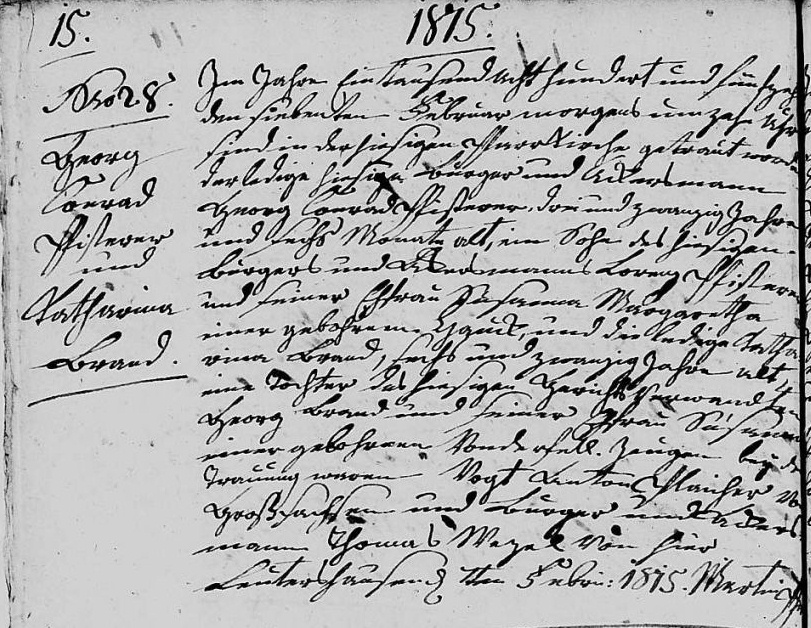 15.
1815.
Nro 28.
Georg
Conrad
Pfisterer
und
Katharina
Brand.
Im Jahre Eintausend Acht hundert und fünfzeh
den siebenten Februar morgens um zehn Uhr
sind in der hiesigen Pfarrkirche getraut word
der ledige hiesige Burger und Ackersmann
Georg Conrad Pfisterer, drei und zwanzig Jahre
und sechs Monate alt, ein Sohn des hiesigen
Burgers und Ackersmanns Lorenz Pfistere
und seiner Ehfrau Susanna Margaretha
einer gebohrnen und die ledige Catha
rina Brand, sechs und zwanzig Jahre alt,
eine Tochter des hiesigen Gerichtsverwandten
Georg Brand und seiner Ehfrau Susanna
einer gebohrnen Zeugen bey der
Trauung waren Vogt Anton Vo
Großsachsen und Burger und Ackers
mann Thomas Wezel von hier
Leutershausen d 7ten Febr: 1815. Martin